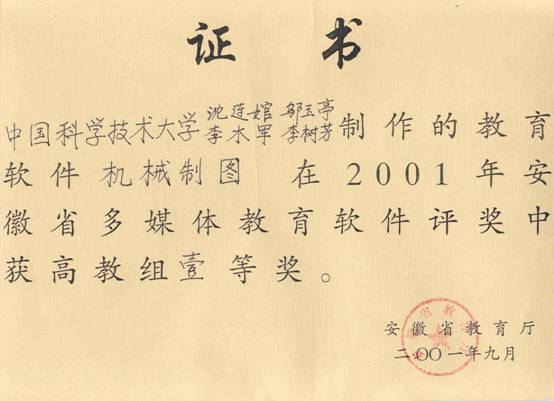 证 书
中国科学技术大学 沈连婠 邬玉亭 李木军 李树芳 制作的教育
软件 机械制图 在2001年安
徽省多媒体教育软件评奖中
获高教组壹等奖。
安徽省教育厅
二〇〇一年九月